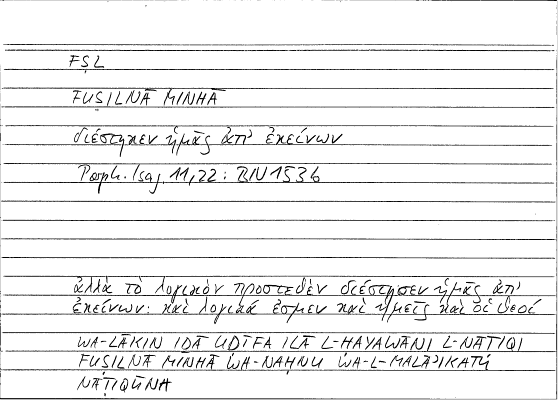 FṢL
FUṢILNĀ MINHĀ
διέστηκεν ἡμᾶς ἀπ' ἐκείνων
Porph. Isag. 11,22 : BN 153b
ἀλλὰ τὸ λογικὸν προστεθὲν διέστησεν ἡμᾶς ἀπ'
ἐκείνων: καὶ λογικά ἐσμεν καὶ ἡμεῖς καὶ οἱ θεοί
WA-LĀKIN IḎĀ UḌĪFA ILĀ L-ḤAYAWĀNI L-NĀṬIQI
FUṢILNĀ MINHĀ WA-NAḤNU WA-L-MALĀʾIKATU
NĀṬIQŪNA